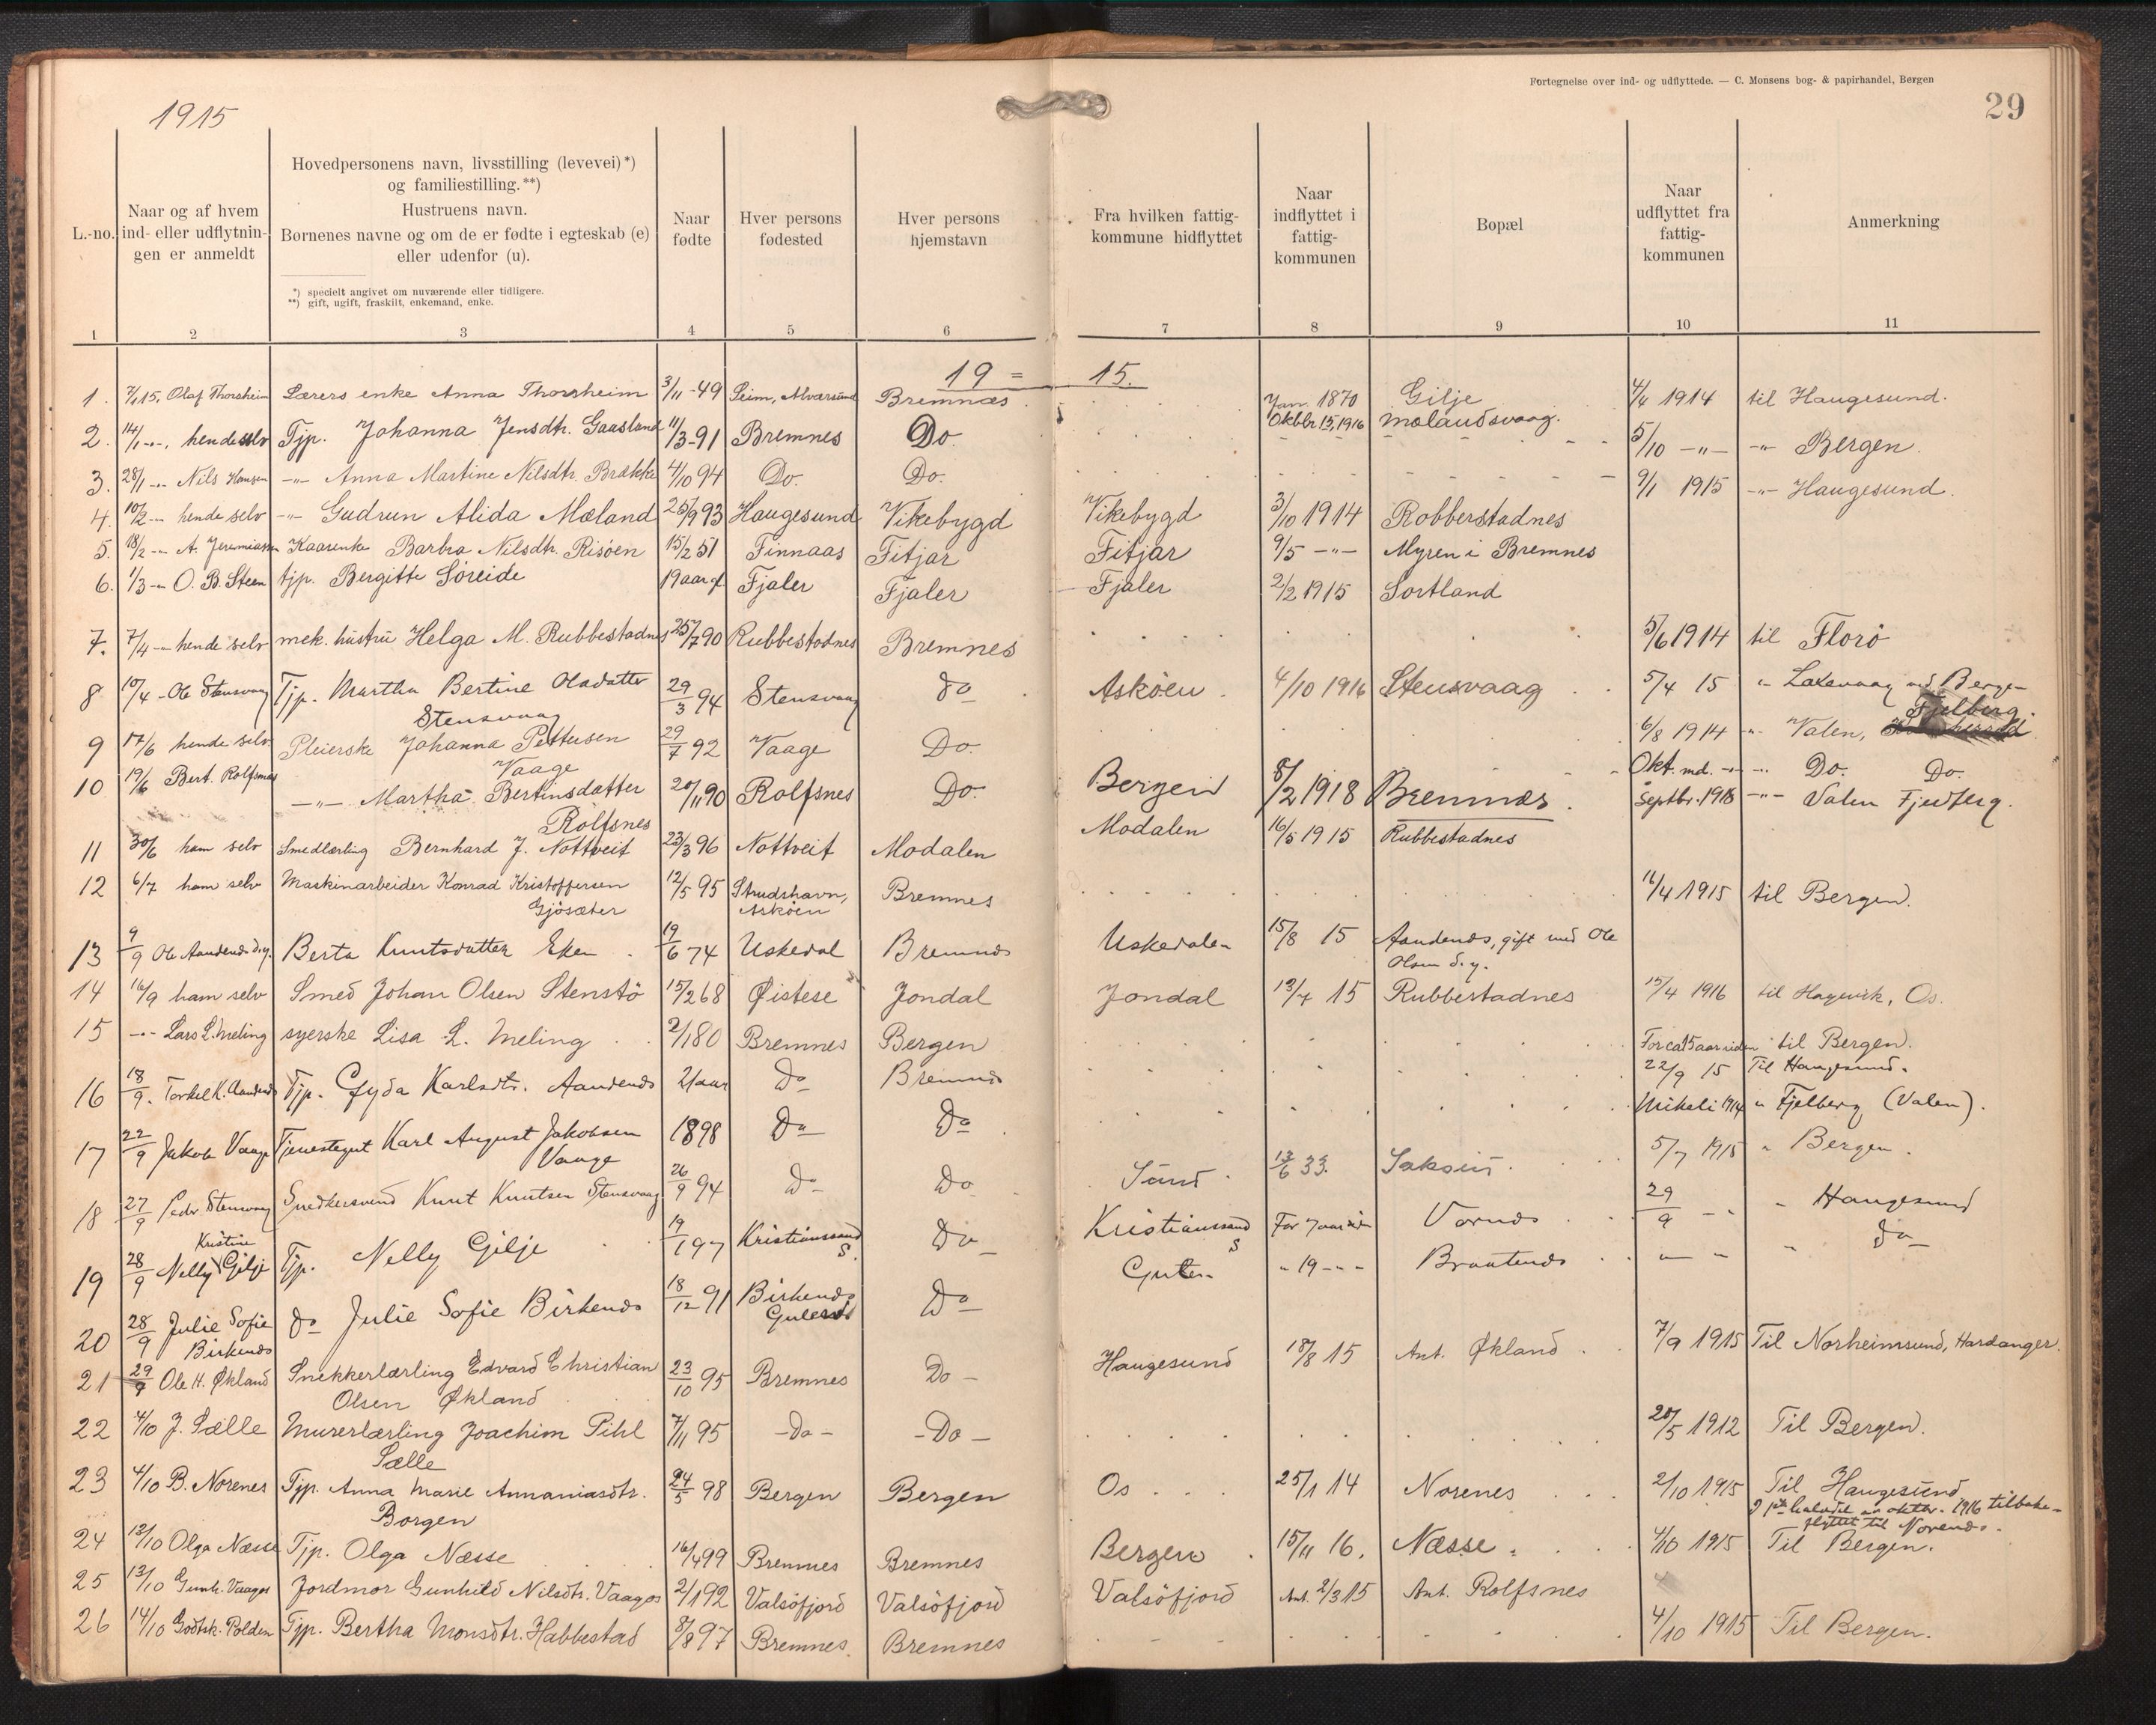 Fortegnelse over ind- og udflyttede. — C. Monsens bog- & papirhandel, Bergen
29
1915
L.-no.
Naar og af hvem ind- eller udflytningen er anmeldt
Hovedpersonens navn, livsstilling (levevei)*)
og familiestilling.**)
Hustruens navn.
Børnenes navne og om de er fødte i egteskab (e)
eller udenfor (u).
*) specielt angivet om nuværende eller tidligere.
**) gift, ugift, fraskilt, enkemand, enke.
Naar fødte
Hver persons fødested
Hver persons hjemstavn
Fra hvilken fattigkommune hidflyttet
Naar indflyttet i fattigkommunen
Bopæl
Naar udflyttet fra fattigkommunen
Anmerkning
1 2 3 4 5 6 7 8 9 10 11
19 = 15.
1. 7/1 15, Olaf Thorsheim Lærers enke Anna Thorsheim 3/11-49 Seim, Alversund Bremnæs Jan. 1870 Gilje 4/4 1914 til Haugesund.
2. 14/1 -"-, hende selv Tjp. Johanna Jensdtr. Gaasland 11/3-91 Bremnes Do. Oktbr 15, 1916 Mælandsvaag. 5/10 -"- -"- Bergen.
3. 28/1 -"- Nils Hansen -"- Anna Martine Nilsdtr. Brække 4/10 94 Do. Do. 9/1 1915 -"- Haugesund.
4. 10/2 -"- hende selv -"- Gudrun Alida Mæland 25/9 93 Haugesund Vikebygd Vikebygd 3/10 1914 Robberstadnes
5. 18/2 -"- A. Jeremiassen Kaarenke Barbra Nilsdtr. Risöen 15/2 51 Finnaas Fitjar Fitjar 9/5 -"- Myren i Bremnes
6. 1/3 -"- O. B. Steen tjp. Bergitte Söreide 19 aar gl Fjaler Fjaler Fjaler 2/2 1915 Sortland
7. 7/4 -"- hende selv mek. hustru Helga M. Rubbestadnes 25/7 90 Rubbestadnes Bremnes 5/6 1914 til Florö
8 10/4 - Ole Stensvaag Tjp. Martha Bertine Olsdatter Stensvaag 29/3 94 Stensvaag do Askøen. 4/10 1916 Stensvaag 5/4 15 " Laxevaag ved Bergen
9 17/6 hende selv. Pleierske Johanna Pettersen Vaage 29/7 92 Vaage Do. 6/8 1914 -"- Valen, Fjelberg.
10 19/6 Bert. Rolfsnes -"- Martha Bertinsdatter Rolfsnes 20/11 90 Rolfsnes Do. Bergen 8/2 1918 Bremnes. Okt. md. -"- -"- Do. Do.
Septbr. 1916 -"- Valen Fjelberg.
11 30/6 ham selv Smedlærling Bernhard J. Nottveit 23/3 96 Nottveit Modalen Modalen 16/5 1915 Rubbestadnes
12 6/7 ham selv Maskinarbeider Konrad Kristoffersen Gjösæter 12/5 95 Strudshavn, Askøen Bremnes 11/4 1915 til Bergen.
13 9/9 Ole Aandenes d.y. Berta Knutsdatter Eken 19/6 74 Uskedal Bremnes Uskedalen 15/8 15 Aandenes, gift med Ole Olsen d.y.
14 16/9 ham selv Smed Johan Olsen Stenstö 15/2 68 Øistese Jondal Jondal 13/7 15 Rubbestadnes 15/4 1916 til Hagevik, Os.
15 -"- Lars L. Meling syerske Lisa L. Meling 2/1 80 Bremnes Bergen For ca 15 aar siden til Bergen.
16 18/9. Torkel K. Aandenes Tjp. Gyda Karlsdtr. Aandenes 21 aar Do Bremnes 22/9 15 Til Haugesund.
17 22/9 Jakob Vaage Tjenestegut Karl August Jakobsen Vaage 1898 Do Do Mikeli 1914 " Fjelberg (Valen).
18 27/9 Peder Stensvaag Snedkersvend Knut Knutsen Stensvaag 26/9 94 Do Do Sund. 13/6 33. 5/7 1915 " Bergen.
19 28/9 Nelly Kristine Gilje Tjp. Nelly Gilje 19/1 97 Kristianssand S. Do Kristianssand S For 7 aar siden Vornes 29/9 -"- " Haugesund
20 28/9 Julie Sofie Birkenes do Julie Sofie Birkenes 18/12 91 Birkenes Gulen Do Gulen " 19 - " - Braatenes -"- " do
21 29/9 Ole H. Økland Snekkerlærling Edvard Christian Olsen Økland 23/10 95 Bremnes Do - Haugesund 18/8 15 Ant. Økland 7/9 1915 Til Norheimsund, Hardanger.
22 4/10 J. Sælle Murerlærling Joachim Pihl Sælle 7/11 95 - Do - - Do - 20/5 1912 Til Bergen.
23 4/10 B. Norenes Tjp. Anna Marie Annaniasdtr. Borgen 24/5 98 Bergen Bergen Os 25/1 14 Norenes 2/10 1915 Til Haugesund
oktbr. 1916 tilbakeflyttet til Norenes.
24 12/10 Olga Næsse Tjp. Olga Næsse 16/4 99 Bremnes Bremnes Bergen 15/11 16. Næsse 4/10 1915 Til Bergen.
25 13/10 Gunh. Vaages Jordmor Gunhild Nilsdtr. Vaages 2/1 92 Valsöfjord Valsöfjord Valsöfjord Ant. 2/3 15 Ant. Rolfsnes
26 14/10 Godtsk. Polden Tjp. Bertha Monsdtr. Habbestad 8/8 97 Bremnes. Bremnes 4/10 1915 Til Bergen.